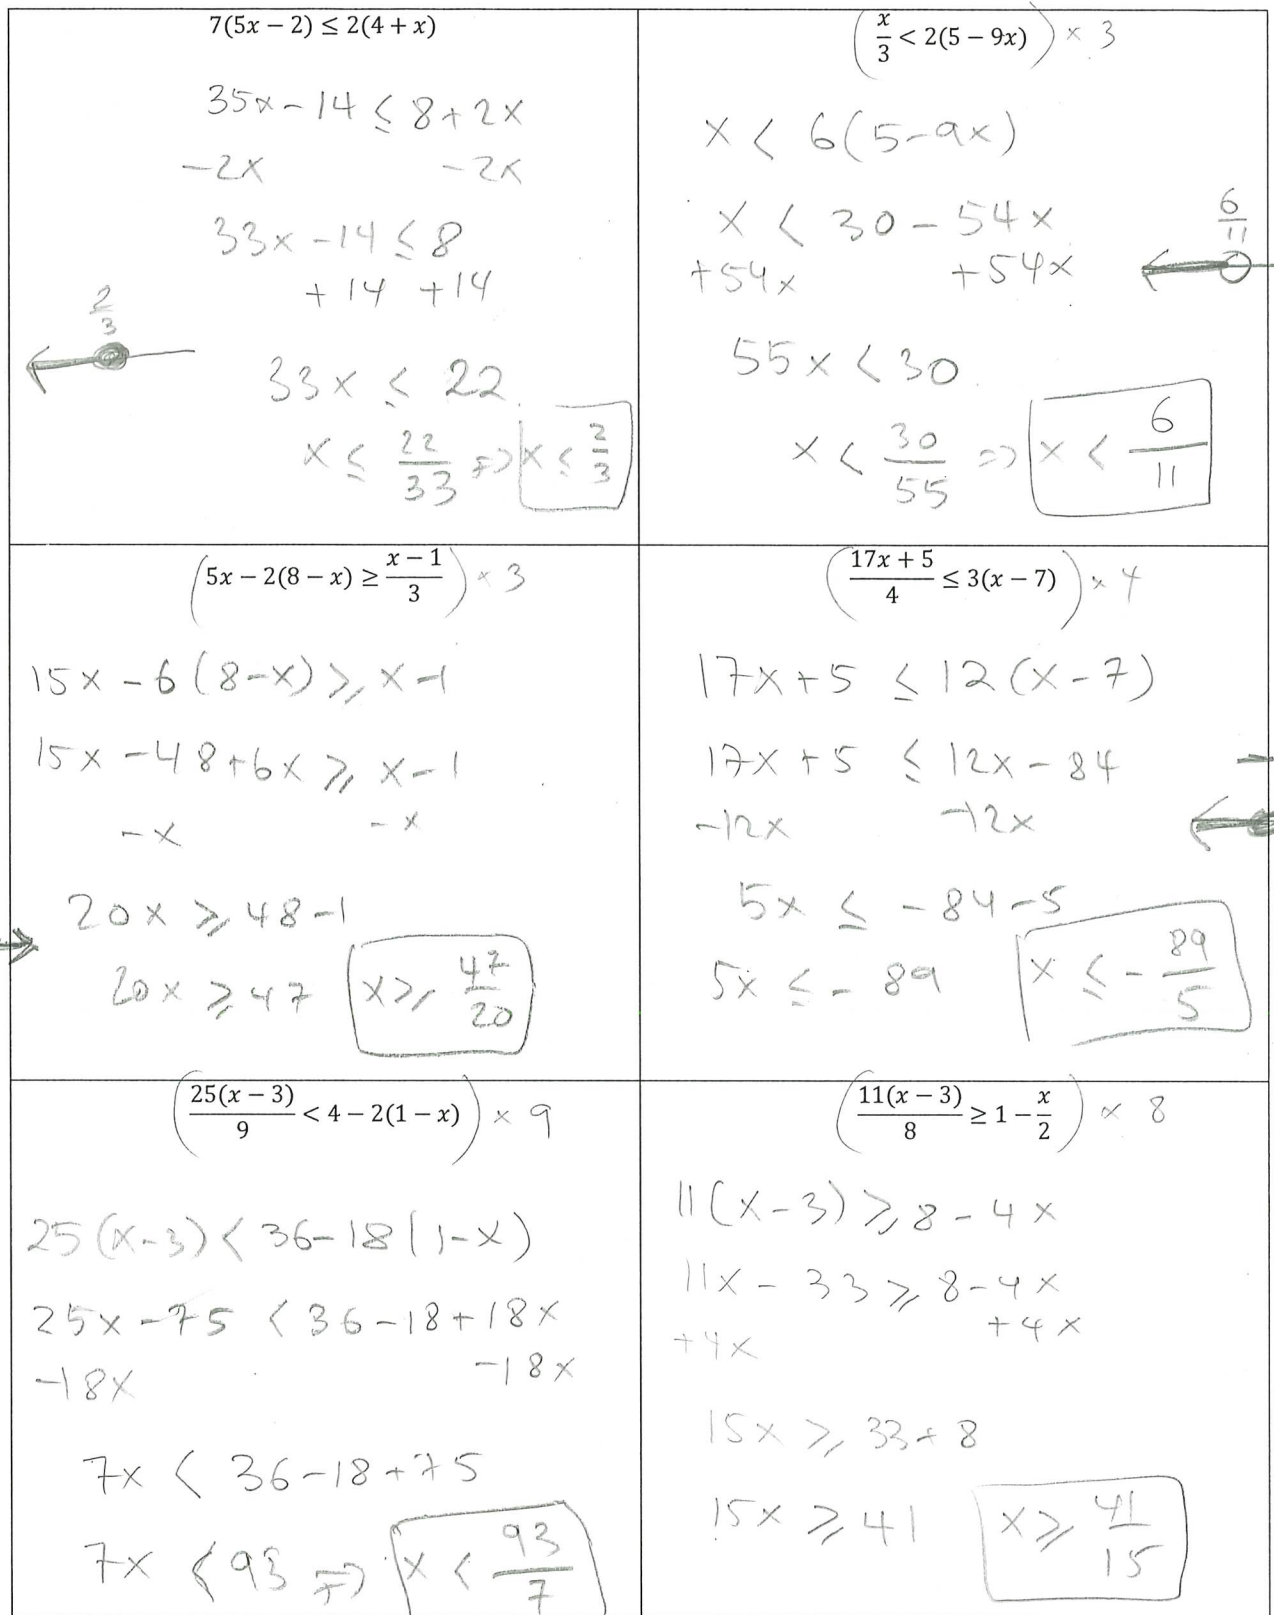 7(5x − 2) ≤ 2(4 + x)
35x - 14 ≤ 8 + 2x
-2x -2x
33x - 14 ≤ 8
+ 14 + 14
2/3
33x ≤ 22
x ≤ 22/33 => x ≤ 2/3
(x/3 < 2(5 − 9x)) × 3
x < 6(5-9x)
x < 30 - 54x
+54x +54x
6/11
55x < 30
x < 30/55 => x < 6/11
(5x − 2(8 − x) ≥ (x − 1)/3) × 3
15x - 6(8-x) ≥ x-1
15x - 48 + 6x ≥ x-1
-x -x
20x ≥ 48-1
20x ≥ 47 x ≥ 47/20
((17x + 5)/4 ≤ 3(x − 7)) × 4
17x + 5 ≤ 12(x-7)
17x + 5 ≤ 12x - 84
-12x -12x
5x ≤ -84-5
5x ≤ - 89 x ≤ - 89/5
(25(x − 3)/9 < 4 − 2(1 − x)) × 9
25(x-3) < 36-18(1-x)
25x-75 < 36-18+18x
-18x -18x
7x < 36-18+75
7x < 93 => x < 93/7
(11(x − 3)/8 ≥ 1 − x/2) × 8
11(x-3) ≥ 8-4x
11x - 33 ≥ 8-4x
+4x +4x
15x ≥ 33+8
15x ≥ 41 x ≥ 41/15